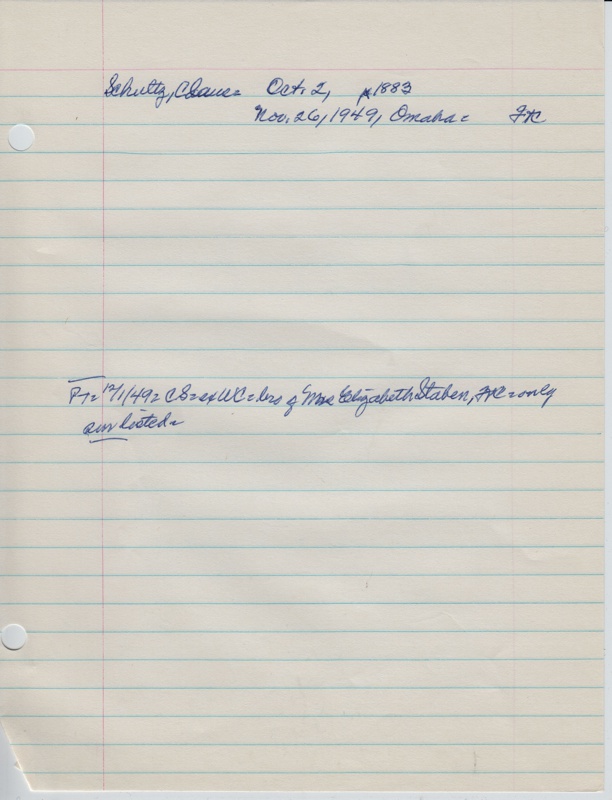 Schultz, Claus= Oct. 2, 1883
Nov. 26, 1949, Omaha= FtC
PT= 12/1/49= CS= ex WC= bro of Mrs Elizabeth Staben, FtC= only
sur listed=